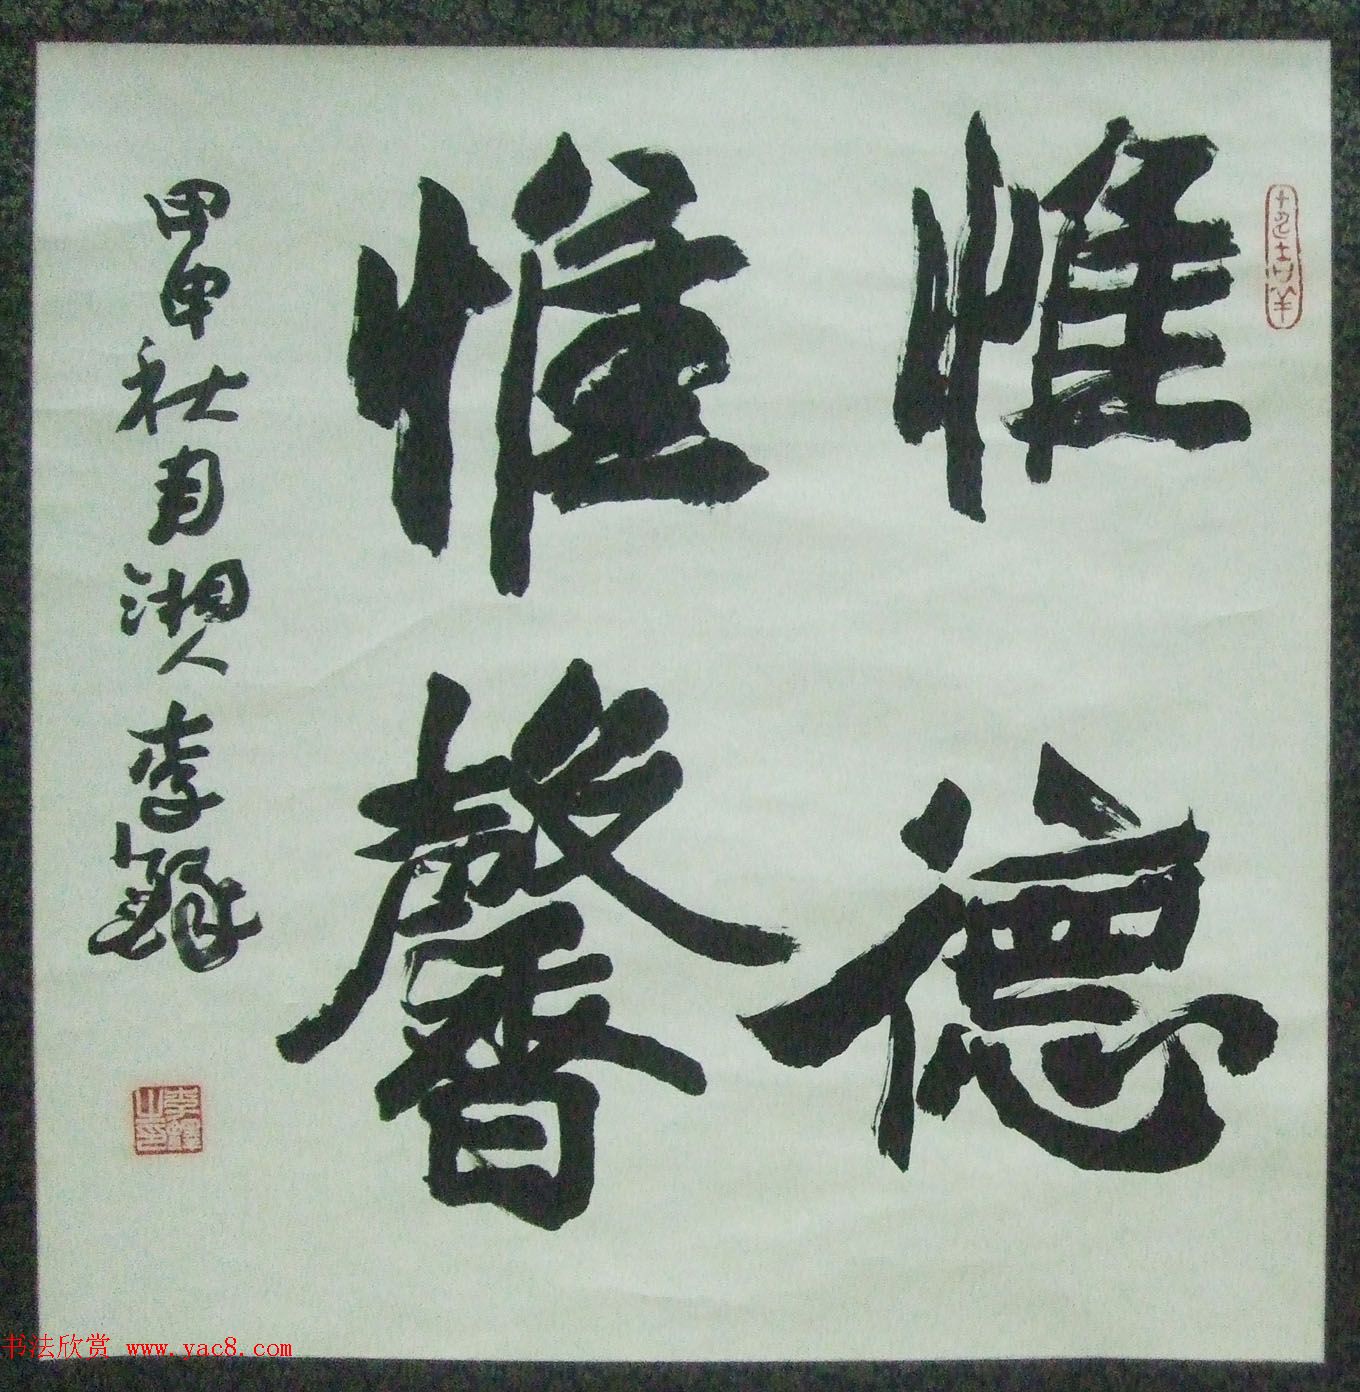 惟德
惟馨
甲申秋月湘人李鐸
李鐸之印
书法欣赏 www.yac8.com